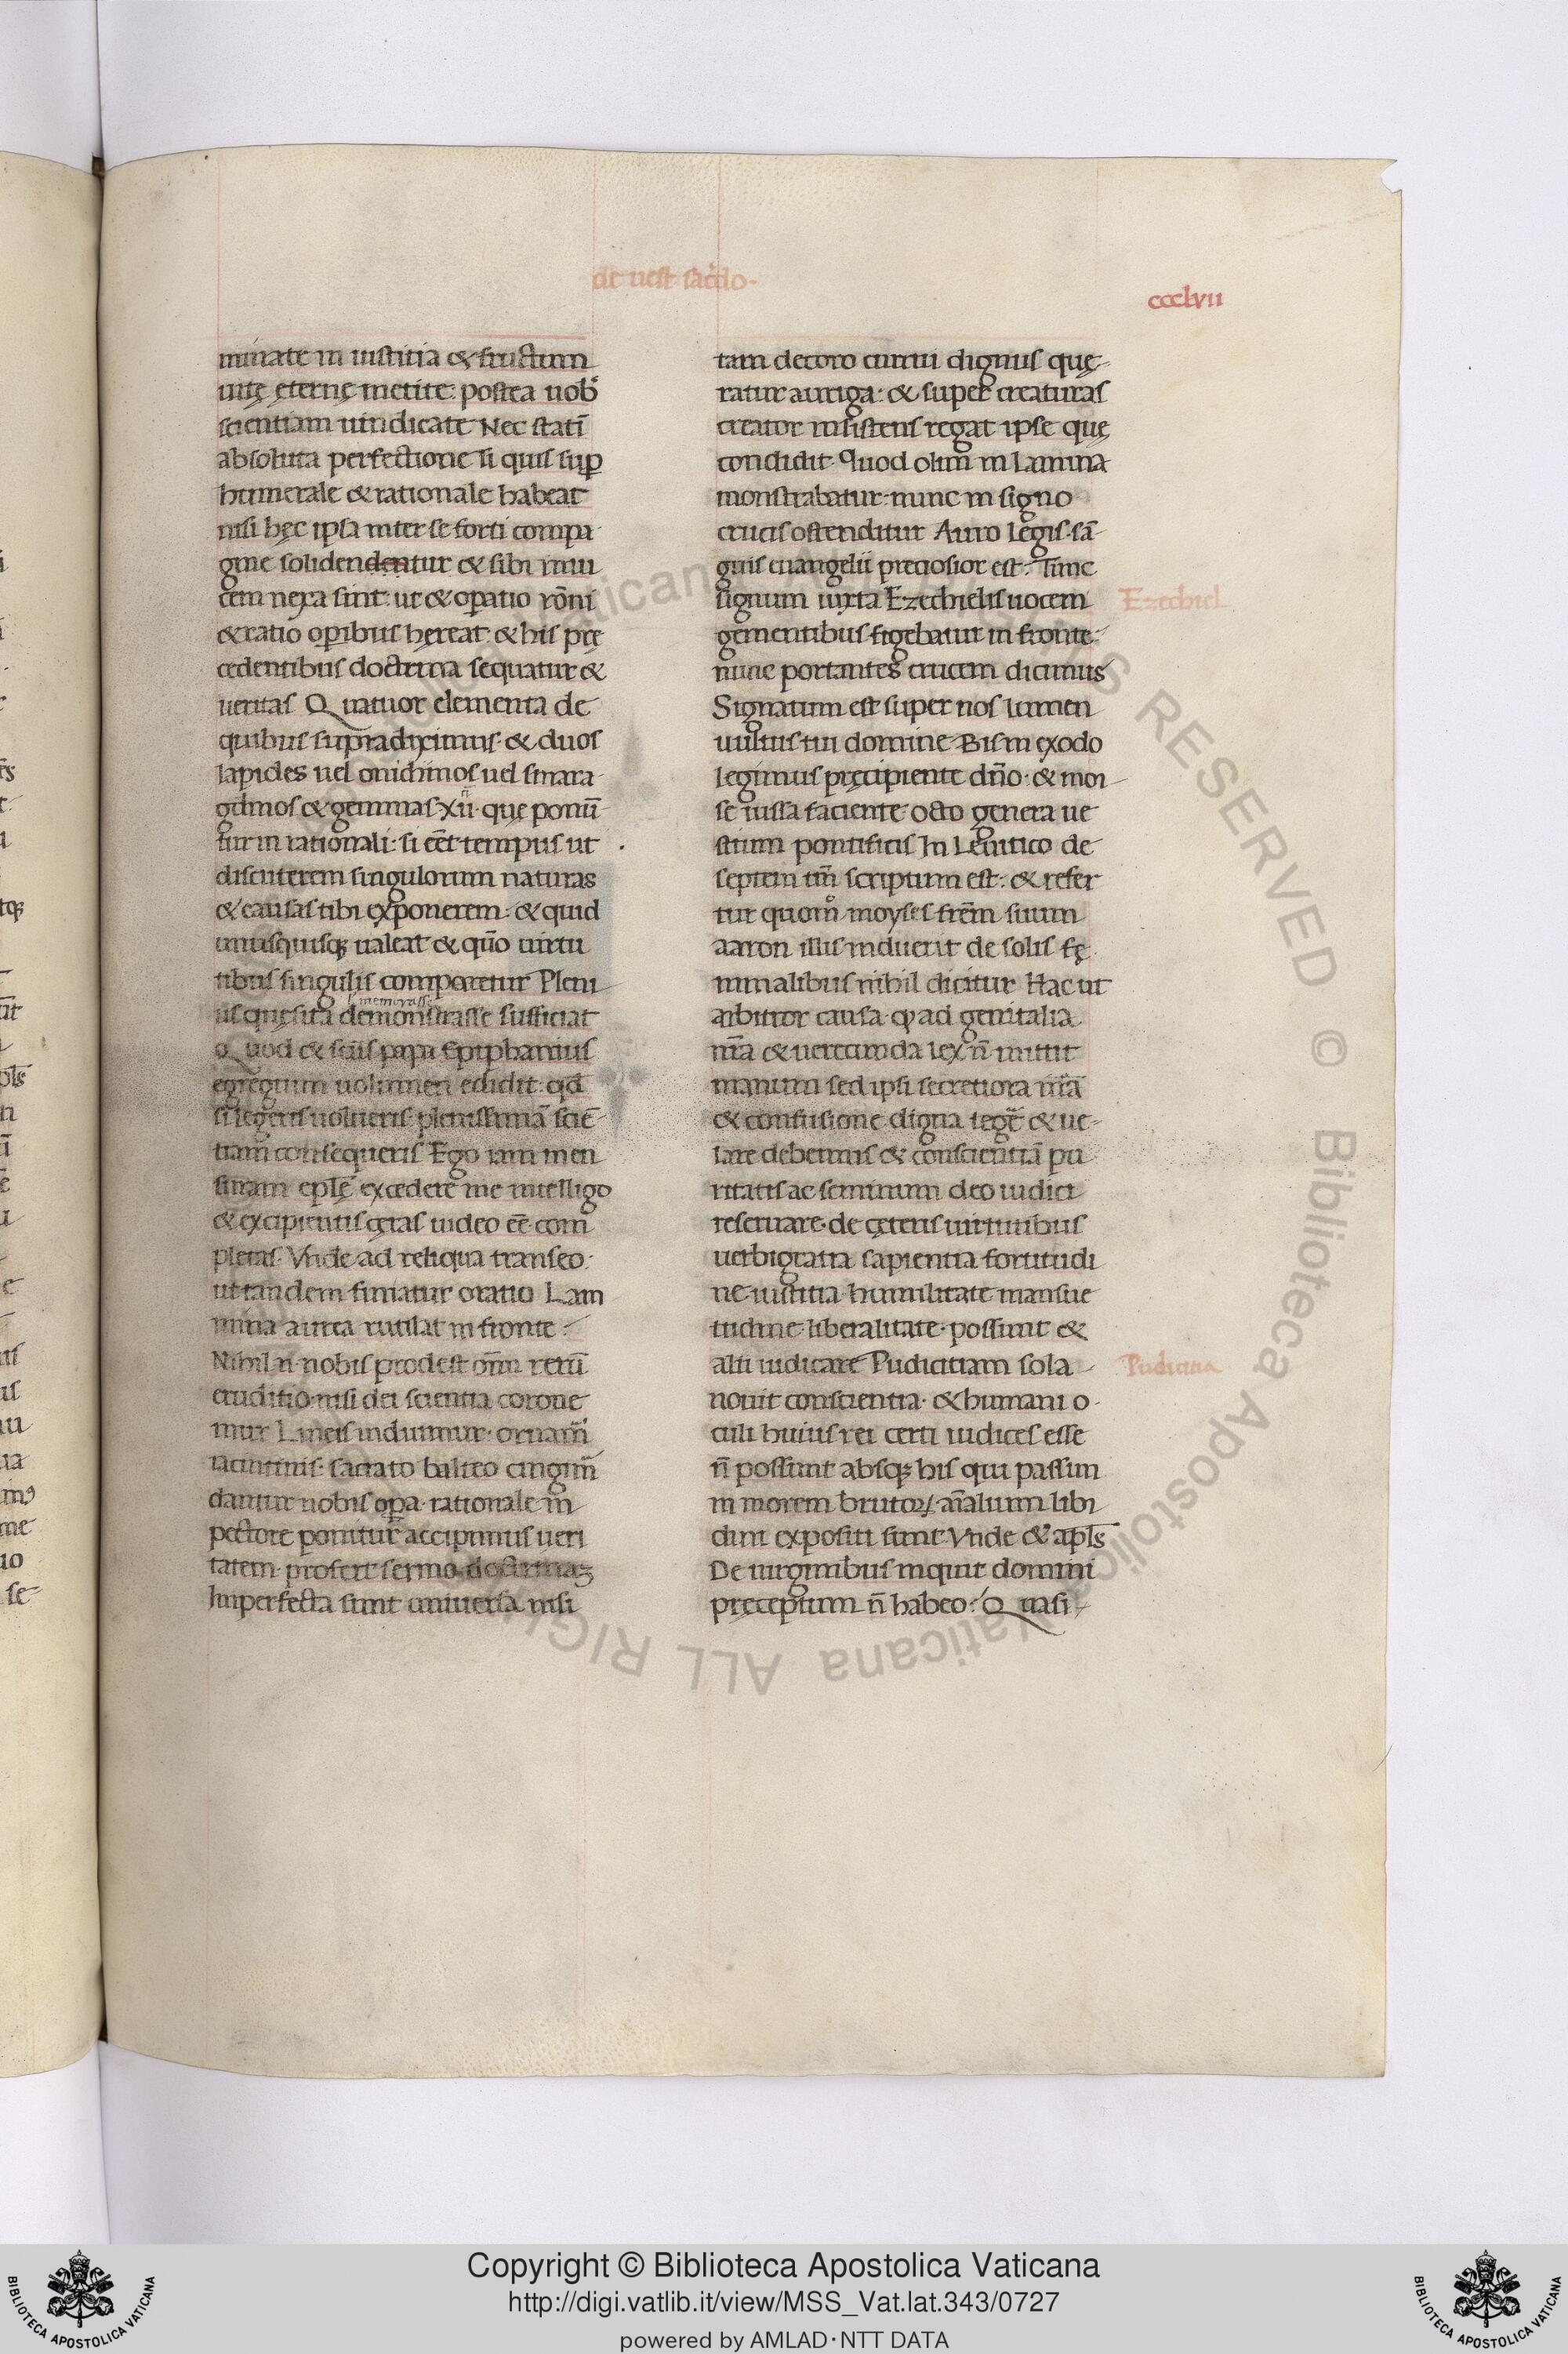 de uest sac̄do·
ccclvii
minate in iustitia & fructum
uitę ęternę metite: postea uob̾
scientiam uindicate Nec stati᷑
absoluta perfectione si quis suꝑ
humerale & rationale habeat
nisi hęc ipsa inter se forti compa-
gine solidendentur & sibi inui
cem nexa sint: ut & oꝑatio rōni
& ratio oꝑibus hęreat· & his prę
cedentibus doctrina sequatur &
ueritas Quatuor elementa de
quibus supradiximus· & duos
lapides uel onichinos uel smara-
gdinos & gemmas·xii· que ponū-
tur in rationali: si eēt tempus ut
discuterem singulorum naturas
& causas tibi exponerem: & quid
unusquisqꝫ ualeat & quō uirtu
tibus singulis comparetur Pleni-
us quęsita demonstrasse sufficiat
Quod & sc̄us papa Epiphanius
egregium uolumen edidit: qd̄
si legeris uolueris plenissimā sciē-
tiam consequeris Ego iam men
suram eplę excedere me intelligo
& excipientis cęras uideo eē com
pletas· Vnde ad reliqua transeo·
ut tandem finiatur oratio Lam-
mina aurea rutilat in fronte:
Nihil n̄ nobis prodest om̄i rerū
eruditio· nisi dei scientia corone
mur Lineis induimur· ornam̄
iacintinis· sacrato balteo cingim̄
dantur nobis oꝑa· rationale in
pectore ponitur accipimus ueri
tatem· profert sermo doctrinaꝫ
Imperfecta sunt uniuersa nisi
tam decoro currui dignus quę-
ratur auriga: & super creaturas
creator insistens regat ipse quę
condidit· Quod olim in lamina
monstrabatur: nunc in signo
crucis ostenditur Auro legis·sā-
guis euangelii preciosior est: Tunc
signum iuxta Ezechielis uocem
Ezechiel
gementibus figebatur in fronte:
nunc portantes crucem dicimus
Signatum est super nos lumen
uultus tui domine· Bis in exodo
legimus pręcipiente dn̄o· & moi-
se iussa faciente· octo genera ue
stium pontificis In Leuitico de
septem tm̄ scriptum est: & refer
tur quom̊ moyses frēm suum
aaron illis induerit de solis fę
minalibus nihil dicitur Hac ut
arbitror causa· ꝙ ad genitalia
nr̄a & uerecunda lex n̄ mittit
manum sed ipsi secretiora nr̄a
& confusione digna tegē & ue-
lare debemus & conscientiā pu
ritatis ac seminum deo iudici
reseruare· de cęteris uirtutibus
uerbigratia sapientia fortitudi
ne iustitia humilitate mansue
tudine liberalitate· possunt &
alii iudicare Pudicitiam sola
Pudicitia
nouit conscientia· & humani o-
culi huius rei certi iudices esse
n̄ possunt absqꝫ his qui passim
in morem brutoꝝ· aīalium libi
dini expositi sunt· Vnde & apl̄s
De uirginibus inquit domini
pręceptum n̄ habeo: Quasi
Copyright © Biblioteca Apostolica Vaticana
http://digi.vatlib.it/view/MSS_Vat.lat.343/0727
powered by AMLAD·NTT DATA